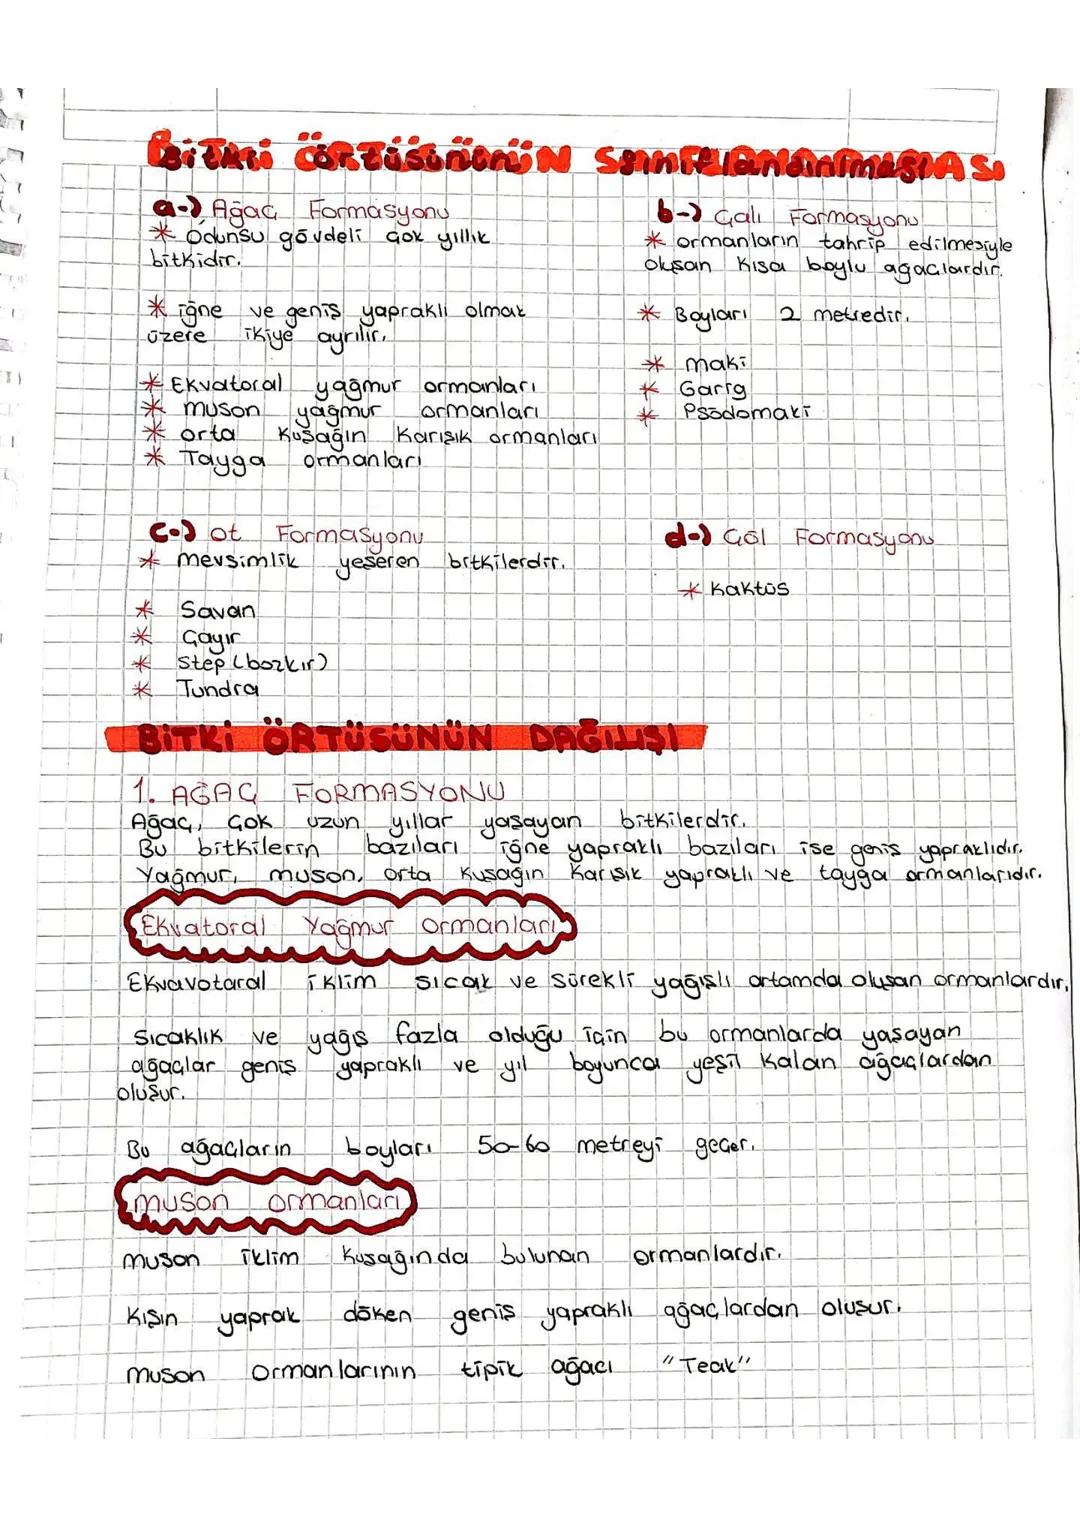 BİTKİ ÖRTÜSÜNÜN SINIFLANDIRILMASI
a-) Ağaç Formasyonu
* Odunsu gövdeli çok yıllık
bitkidir.
* iğne ve geniş yapraklı olmak
üzere ikiye ayrılır.
* Ekvatoral yağmur ormanları
* muson yağmur ormanları
* orta Kuşağın Karışık ormanları
* Tayga ormanları
b-) Çalı Formasyonu
* ormanların tahrip edilmesiyle
oluşan kısa boylu ağaçlardır.
* Boyları 2 metredir.
* maki
* Garig
* Psödomaki
c-) ot Formasyonu
* mevsimlik yeşeren bitkilerdir.
* Savan
* Çayır
* Step (bozkır)
* Tundra
d-) Çöl Formasyonu
* Kaktüs
BİTKİ ÖRTÜSÜNÜN DAĞILIŞI
1. AĞAÇ FORMASYONU
Ağaç, çok uzun yıllar yaşayan bitkilerdir.
Bu bitkilerin bazıları iğne yapraklı bazıları ise geniş yapraklıdır.
Yağmur, muson, orta Kuşağın Karışık yapraklı ve tayga ormanlarıdır.
Ekvatoral Yağmur ormanları
Ekvavotaral iklim sıcak ve sürekli yağışlı ortamda oluşan ormanlardır.
Sıcaklık ve yağış fazla olduğu için bu ormanlarda yaşayan
ağaçlar geniş yapraklı ve yıl boyunca yeşil kalan ağaçlardan
oluşur.
Bu ağaçların boyları 50-60 metreyi geçer.
muson ormanları
muson iklim kuşağında bulunan ormanlardır.
Kışın yaprak döken geniş yapraklı ağaçlardan oluşur.
muson ormanlarının tipik ağacı "Teak"